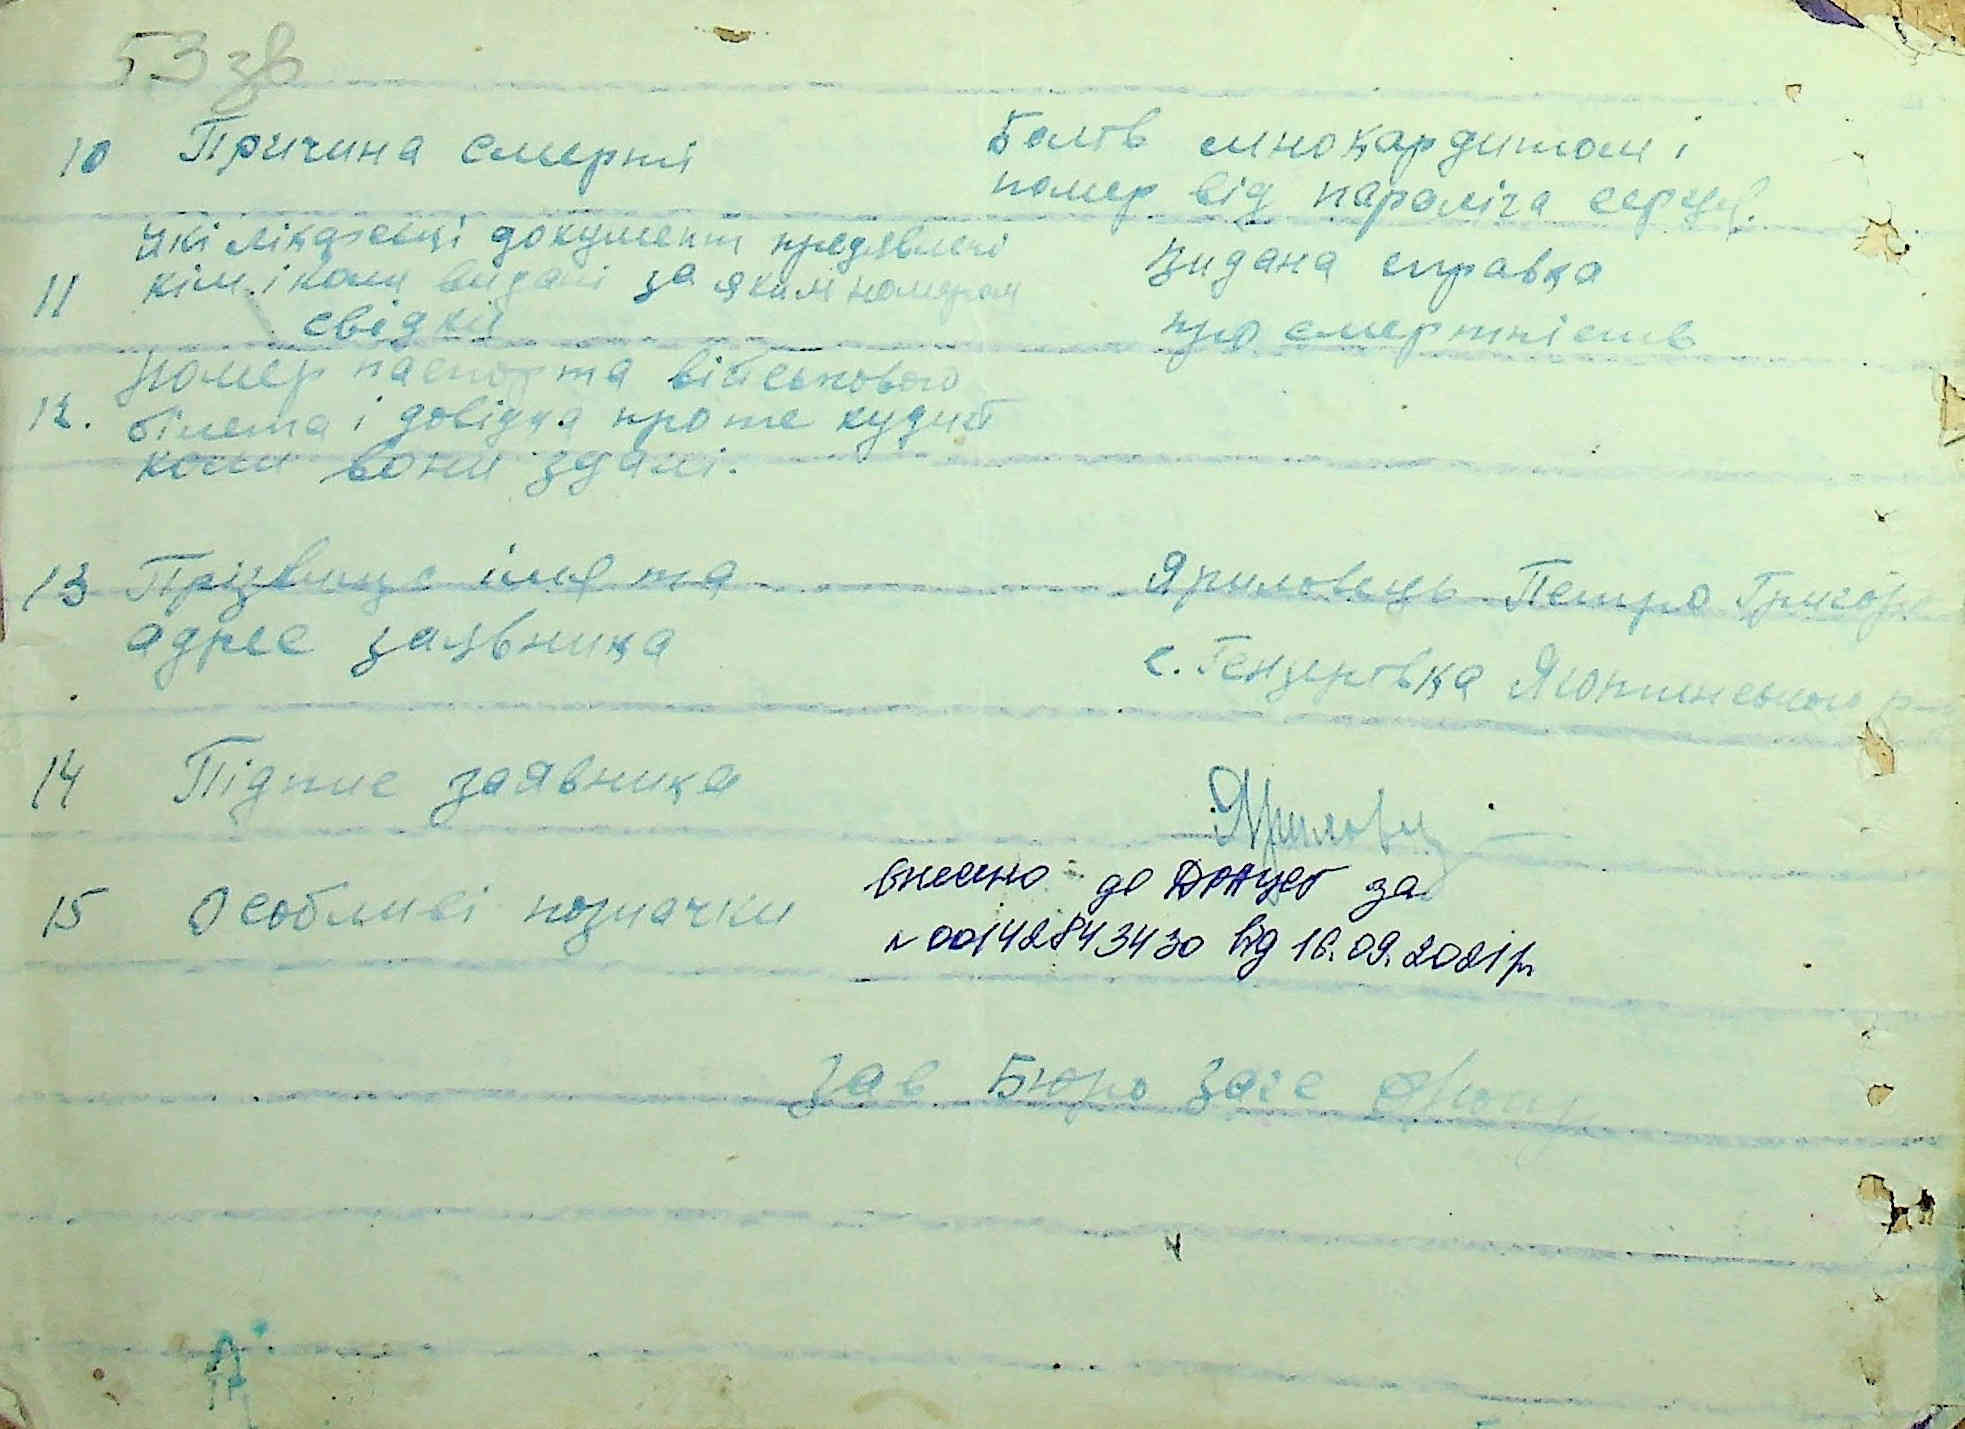 53 зв
10 Причина смерті
Болів миокардитом і
помер від параліча серця.
11 Які лікарські документи предявлені
кім і коли видані за яким номером
свідки
Видана справка
про смертність
12. Номер паспорта військового
білета і довідка про те куди й
коли вони здані.
13 Прізвище імя та
адрес заявника
Яриловець Петро Григор
с. Гензерівка Яготинського р-
14 Підпис заявника
Яриловец
15 Особливі позначки
внесено до ДРАЦСГ за
№00142843430 від 16.09.2021р
Зав Бюро Загс